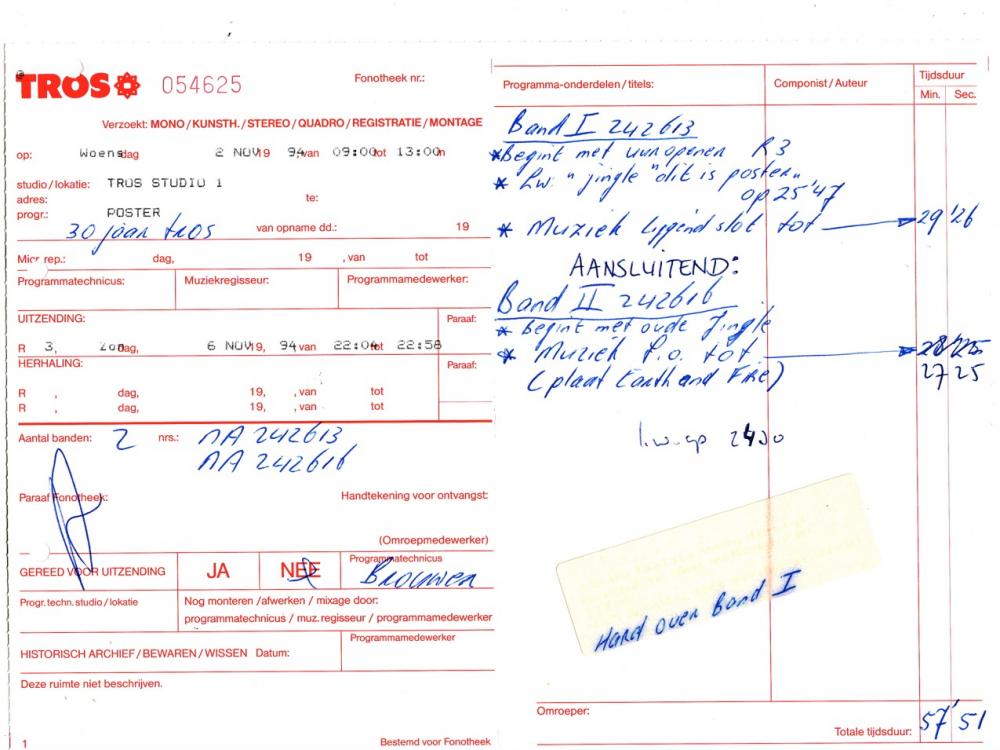 TROS 054625 Fonotheek nr.:
Verzoekt: MONO/KUNSTH./STEREO/QUADRO/REGISTRATIE/MONTAGE
op: Woensdag 2 NOV19 94van 09:00tot 13:00n
studio/lokatie: TROS STUDIO 1
adres: te:
progr.: POSTER
30 jaar TROS van opname dd.: 19
Micr rep.: dag, 19 , van tot
Programmatechnicus: Muziekregisseur: Programmamedewerker:
UITZENDING: Paraaf:
R 3, Zondag, 6 NOV19, 94van 22:04tot 22:58
HERHALING: Paraaf:
R , dag, 19, , van tot
R , dag, 19, , van tot
Aantal banden: 2 nrs.: MA 242613
MA 242616
Paraaf Fonotheek: Handtekening voor ontvangst:
(Omroepmedewerker)
GEREED VOOR UITZENDING JA NEE Programmatechnicus
Brouwer
Progr.techn.studio/lokatie Nog monteren/afwerken/mixage door:
programmatechnicus/muz.regisseur/programmamedewerker
HISTORISCH ARCHIEF/BEWAREN/WISSEN Datum: Programmamedewerker
Deze ruimte niet beschrijven.
1 Bestemd voor Fonotheek
Programma-onderdelen/titels: Componist/Auteur Tijdsduur
Min. Sec.
Band I 242613
* Begint met uuropener R3
* Lw: "jingle "dit is poster"
op 25'47
* Muziek liggend slot tot 29'26
AANSLUITEND:
Band II 242616
* Begint met oude Jingle
* Muziek f.o. tot 28'25
(plaat Earth and Fire) 27 25
l.w. op 2430
Hard over Band I
Omroeper:
Totale tijdsduur: 57'51